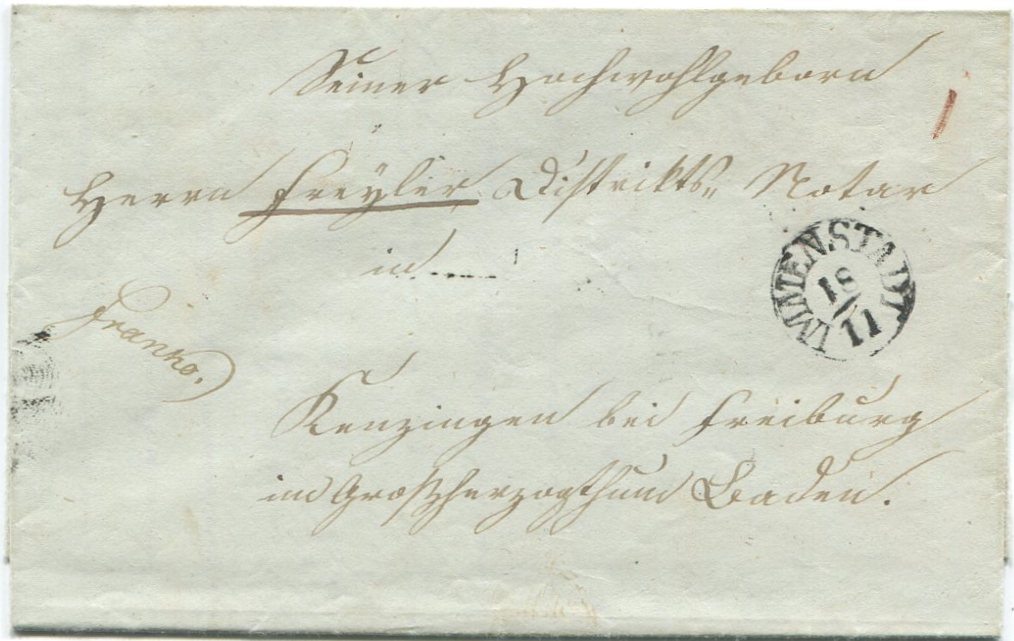 Seiner Hochwohlgeborn
Herrn Freyler Distrikts- Notar
in
Franko.
IMMENSTADT
18/11
Kenzingen bei Freiburg
im Grosherzogthum Baden.